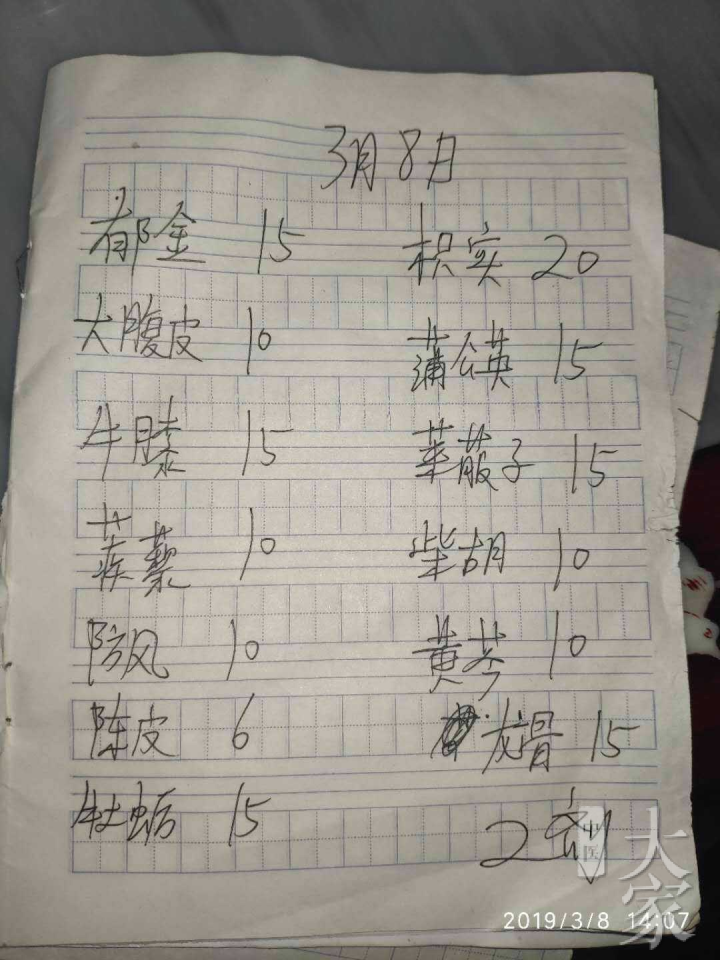 3月8日
郁金 15 枳实 20
大腹皮 10 蒲公英 15
牛膝 15 莱菔子 15
蒺藜 10 柴胡 10
防风 10 黄芩 10
陈皮 6 龙骨 15
牡蛎 15 2剂
中医
大家
2019/3/8 14:07